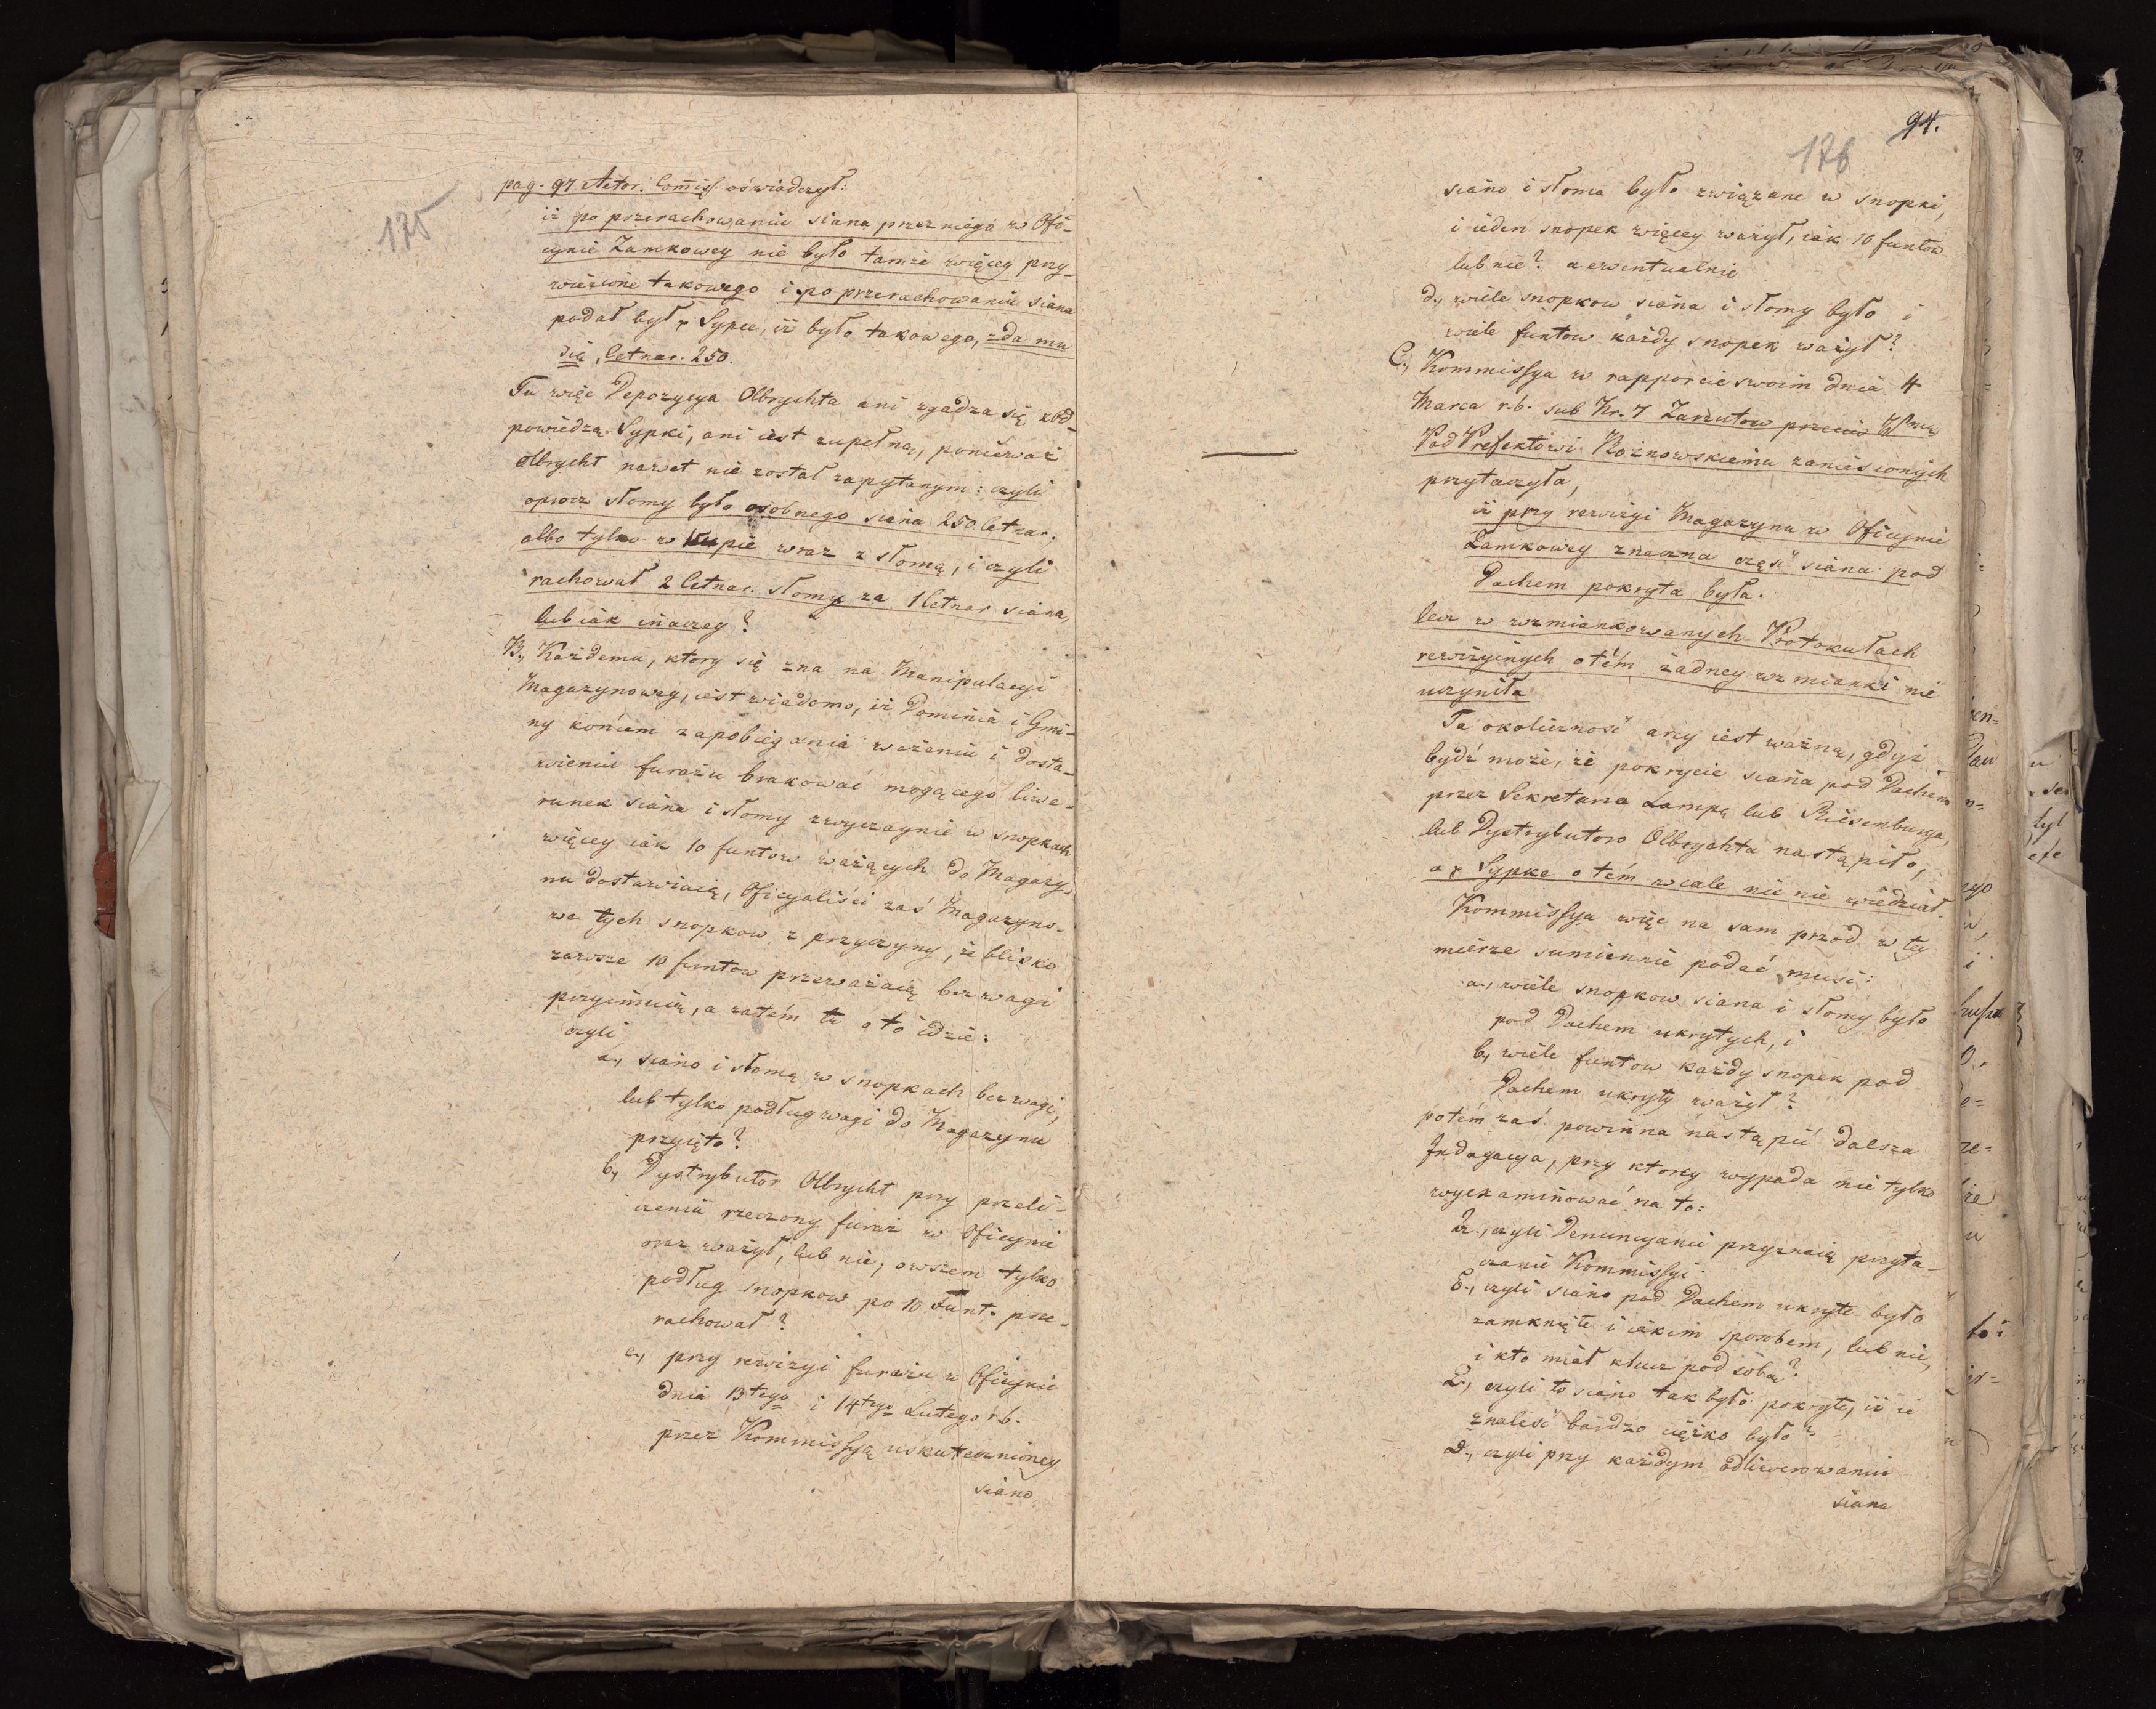 175
pag. 97 Actor. Com̄iss. oświadczył:
iż po przerachowaniu siana przez niego w Ofi-
cynie Zamkowey nie było tamże więcey przy-
wiezione takowego i po przerachowaniu siana
podał był P. Sypce, iż było takowego, zda mu
się, Cetnar. 250.
Tu więc Depozycya Olbrychta ani zgadza się z Od-
powiedzą Sypki, ani iest zupełną, ponieważ
Olbrycht nawet nie został zapytanym: czyli
oprocz słomy było osobnego siana 250 Cetnar.
albo tylko w kupie wraz z słomą, i czyli
rachował 2 Cetnar. słomy za 1 Cetnar siana,
lub iak inaczey?
B., Każdemu, ktory się zna na Manipulacyi
Magazynowey, iest wiadomo, iż Dominia i Gmi-
ny końcem zapobiegania ważeniu i dosta-
wieniu furażu brakować mogącego liwe-
runek siana i słomy zwyczaynie w snopkach
więcey iak 10 funtow ważących do Magazy-
nu dostawiaią, Oficyaliści zaś Magazyno-
we tych snopkow z przyczyny, że blisko
zawsze 10 funtow przeważaią bez wagi
przyimuią, a zatém tu o to idzie:
czyli
a., siano i słomę w snopkach bez wagi,
lub tylko podług wagi do Magazynu
przyięto?
b., Dystrybutor Olbrycht przy przeli-
czeniu rzeczony furaż w Oficynie
oraz ważył, lub nie; owszem tylko
podług snopkow po 10 Funt. prze-
rachował?
c., przy rewizyi furażu w Oficynie
dnia 13tego i 14tego Lutego r.b.
przez Kommissyą uskutecznioney
siano
94.
176
siano i słoma było związane w snopki,
i ieden snopek więcey ważył, iak 10 funtow
lub nie? a ewentualnie
d., wiele snopkow siana i słomy było i
wiele funtow każdy snopek ważył?
C., Kommissya w rapporcie swoim dnia 4
Marca r.b. sub Nr. 7 Zarzutow przeciw
Pod Prefektowi Rożnowskiemu zaniesionych
przytaczyła,
iż przy rewizyi Magazynu w Oficynie
Zamkowey znaczna część siana pod
Dachem pokryta była.
lecz w wzmiankowanych Protokułach
rewizyinych o tém żadney wzmianki nie
uczyniła
Ta okoliczność arcy iest ważną, gdyż
bydź może, że pokrycie siana pod Dachem
przez Sekretarza Lampę lub Riesenburga,
lub Dystrybutora Olbrychta nastąpiło,
a P. Sypke o tém wcale nic nie wiedział.
Kommissya więc na sam przod w tey
mierze sumiennie podać musi:
a., wiele snopkow siana i słomy było
pod Dachem ukrytych, i
b., wiele funtow każdy snopek pod
Dachem ukryty ważył?
potém zaś powinna nastąpić dalsza
Indagacya, przy ktorey wypada nie tylko
wyexaminować na to:
czyli Denuncyanci przyznaią przyta-
czanie Kommissyi
czyli siano pod Dachem ukryte było
zamknięte i iakim sposobem, lub nie,
i kto miał klucz pod sobą?
czyli to siano tak było pokryte, iż ie
znaleść bardzo ciężko było?
czyli przy każdym odliwerowaniu
siana